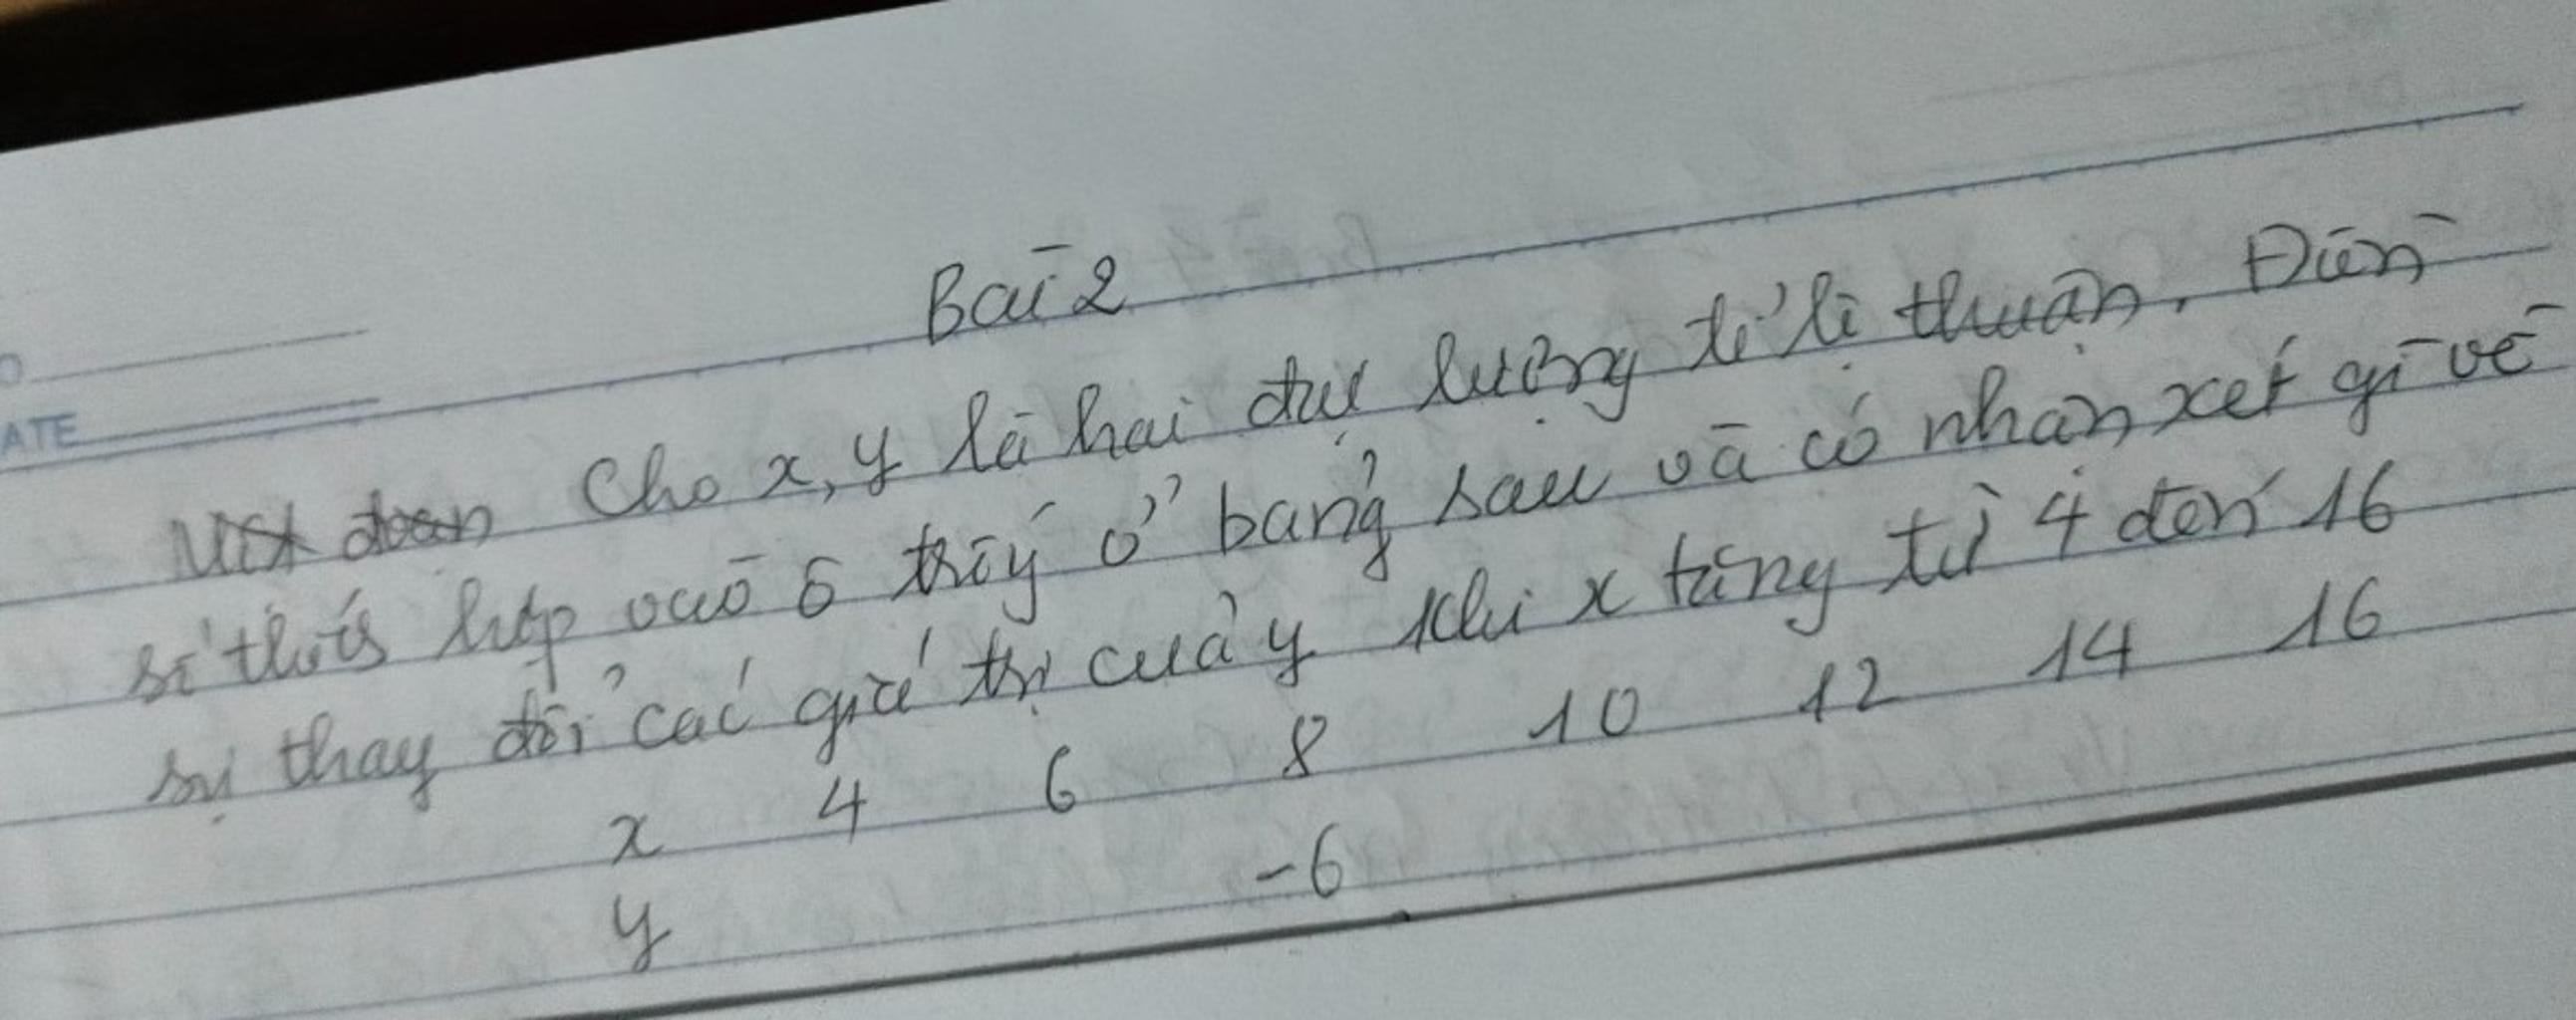 Bài 2
Cho x, y là hai đại lượng tỉ lệ thuận. Điền
số thích hợp vào ô trống ở bảng sau và có nhận xét gì về
sự thay đổi các giá trị của y khi x tăng từ 4 đến 16
x 4 6 8 10 12 14 16
y -6
ATE